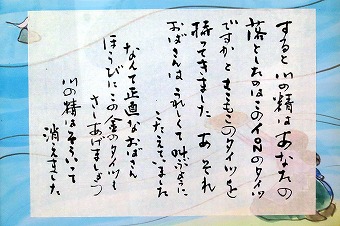 すると川の精はあなたの
落としたのはこのイ8Nのタイツ
ですかとももこのタイツを
持ってきました あ それ
おばさんは これしてと叫ぶように
こたえていました
なんて正直なおばさん
ほうびにこの金のタイツも
さしあげましょう
川の精はそういって
消えました